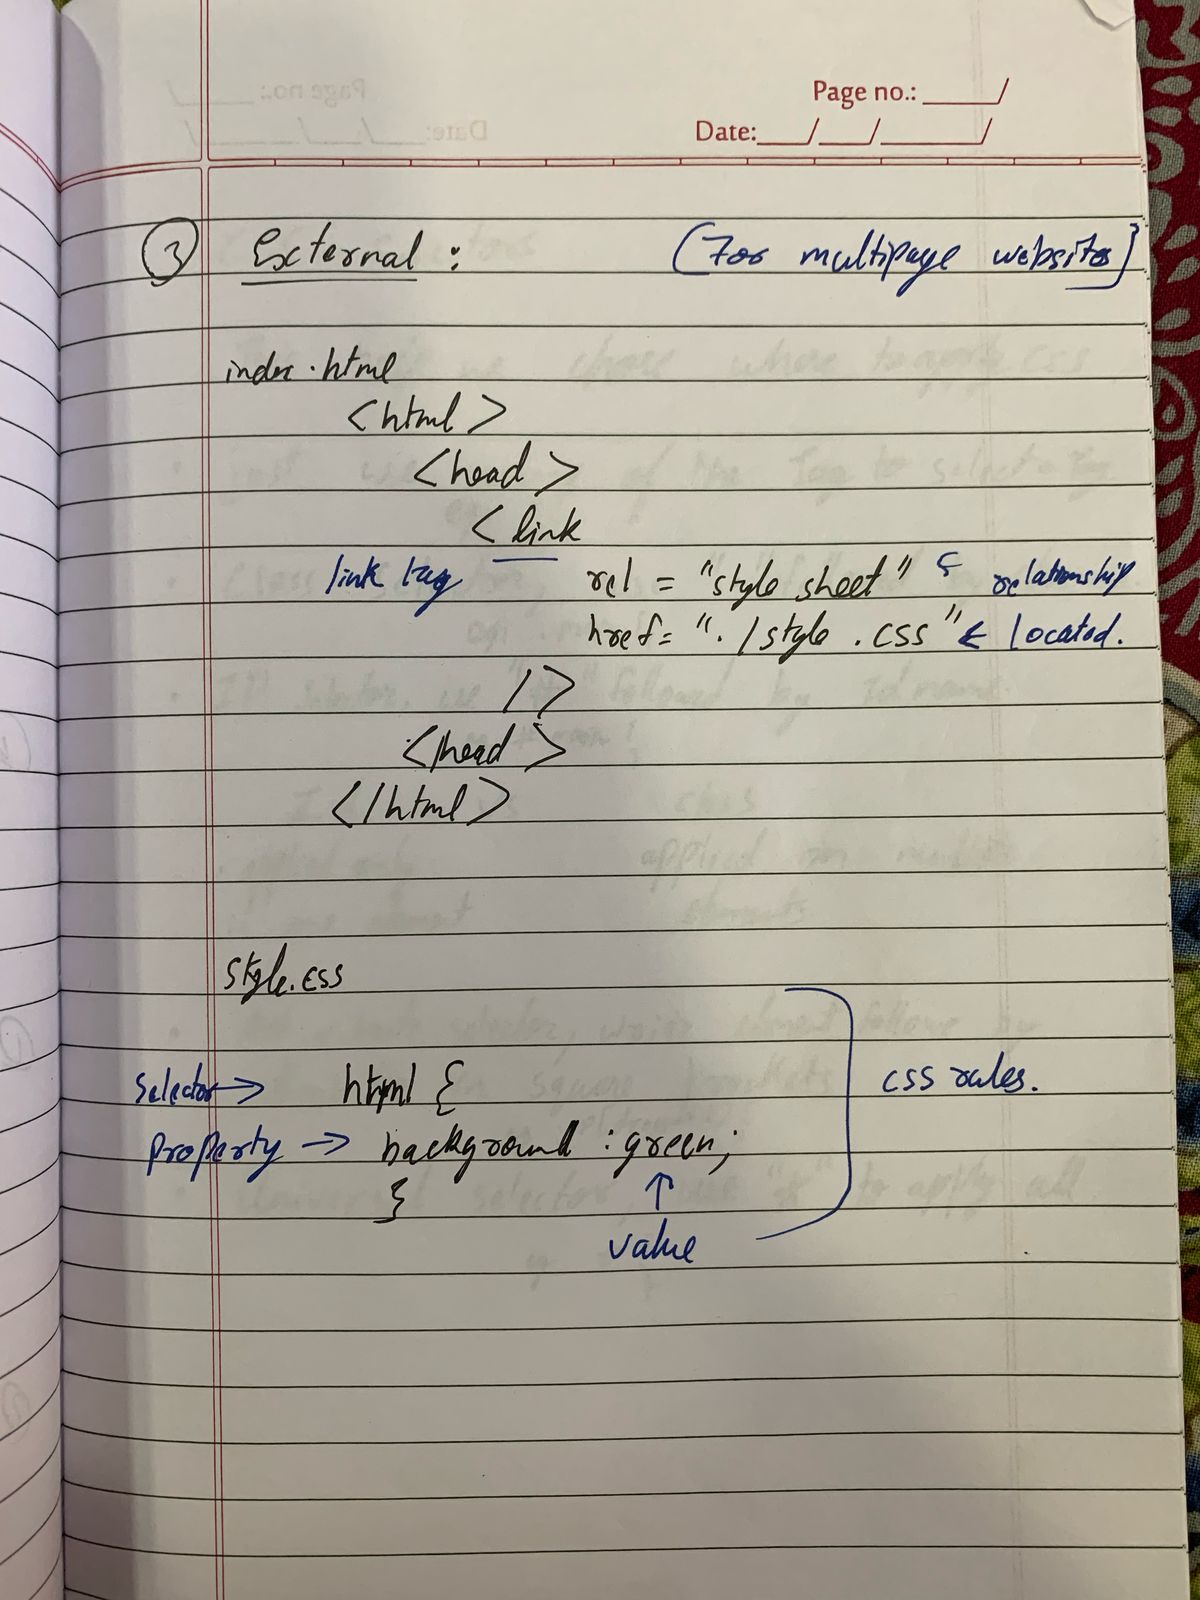 Page no.: ____/
Date:___/___/_____/
3 External : (For multipage websites)
index.html
<html>
<head>
<link
link tag rel = "style sheet" ← relationship
href= "./style.css" ← located.
/>
</head>
</html>
style.css
selector → html {
property → background : green;
}
value
css rules.